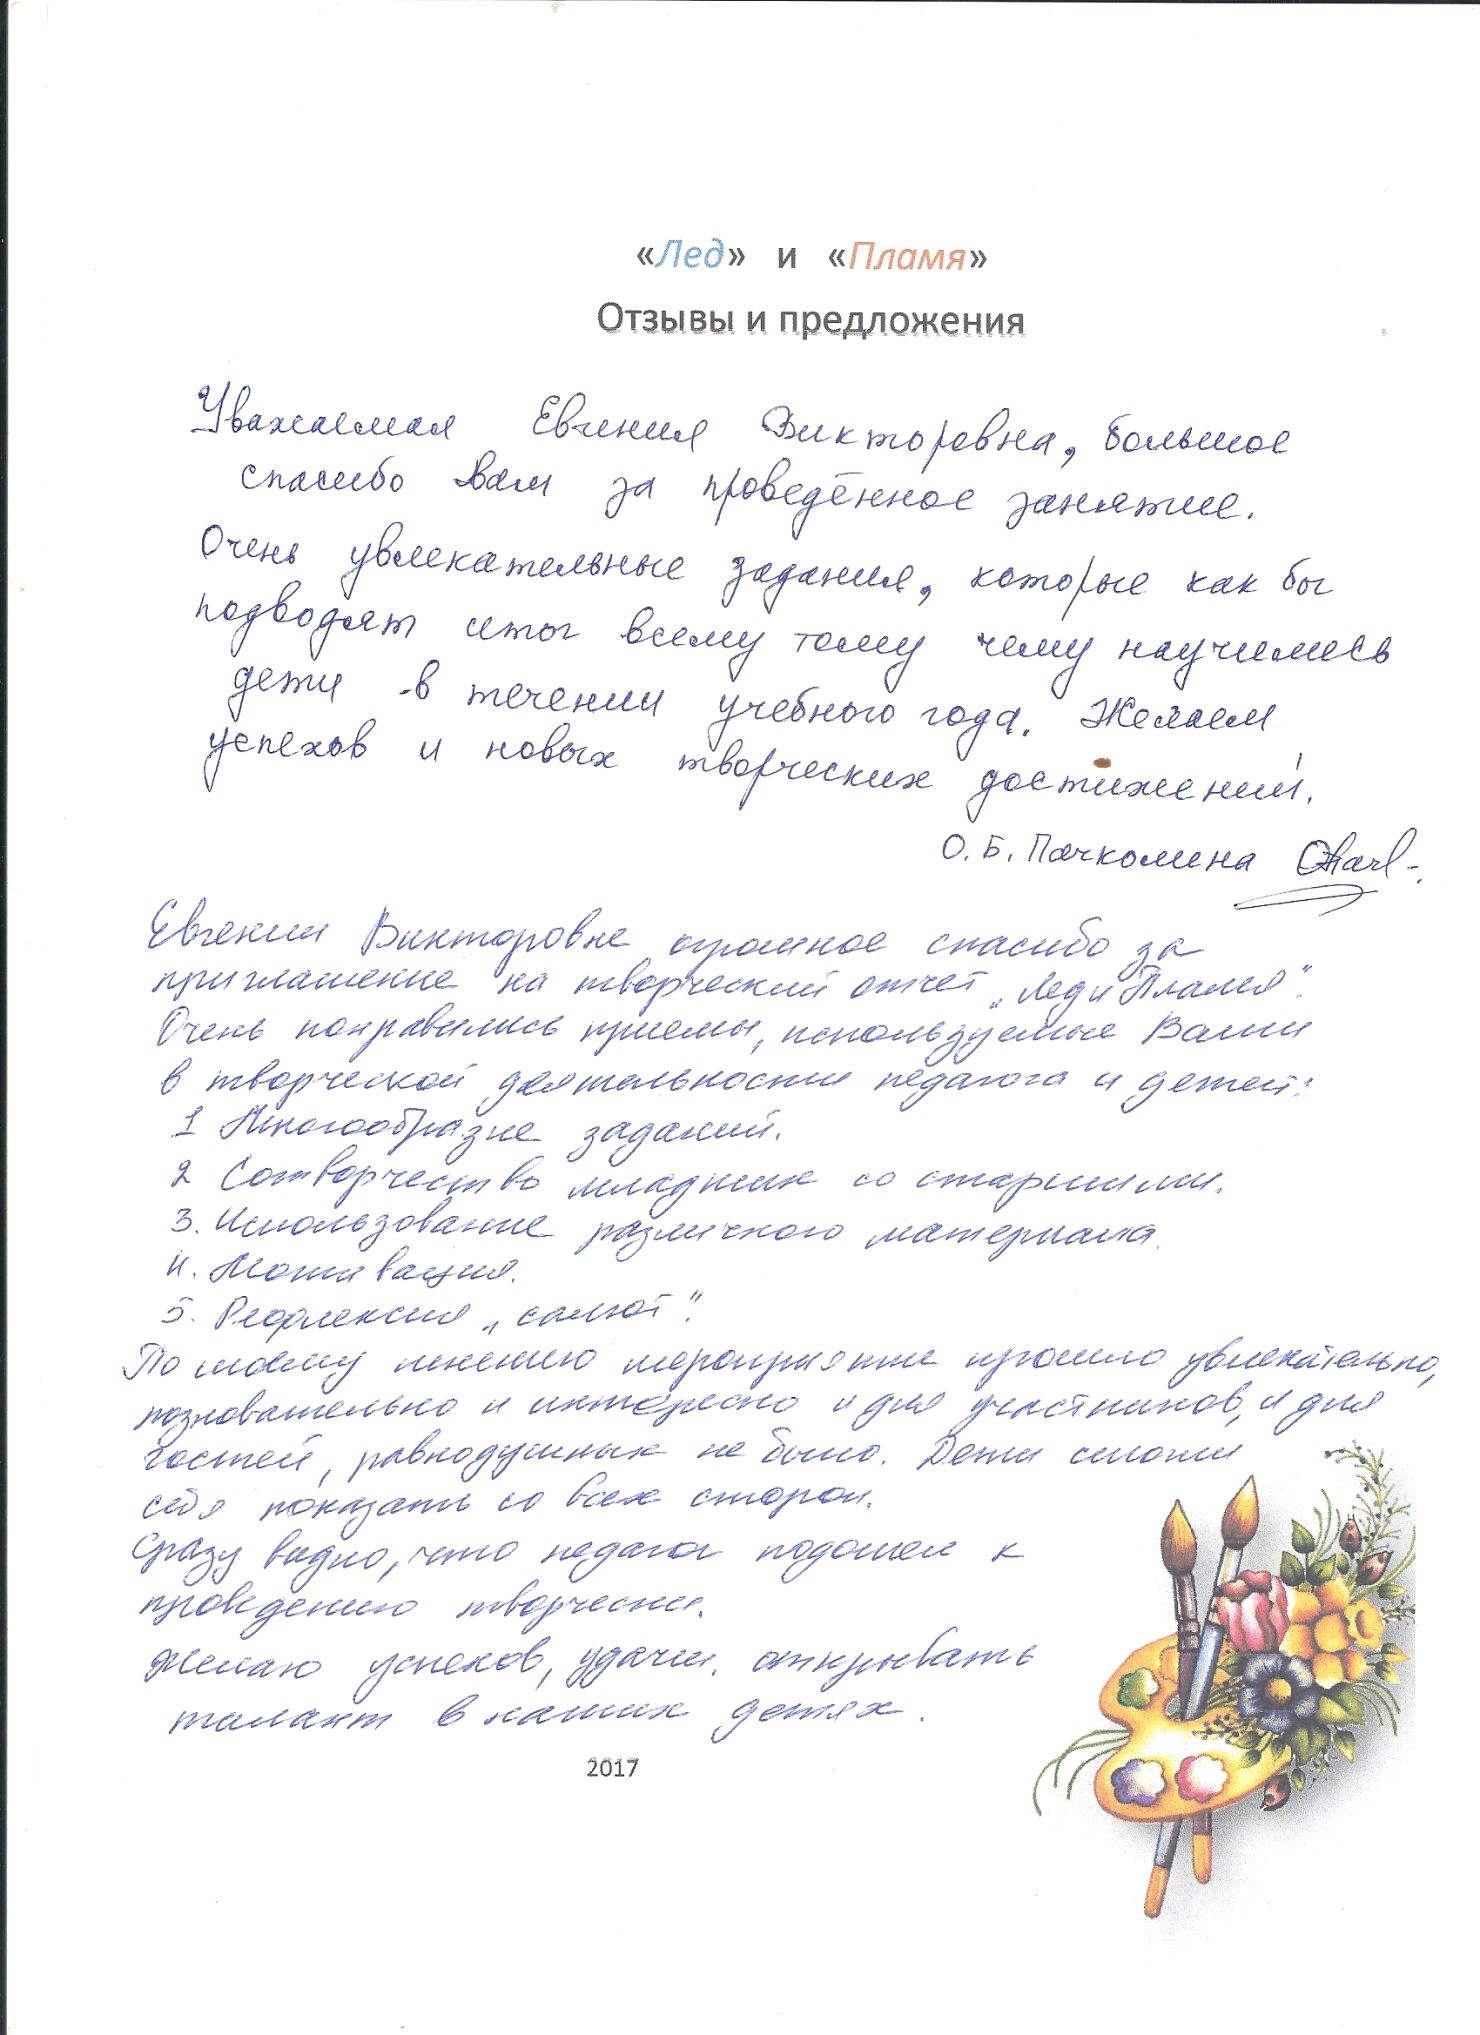 «Лед» и «Пламя»
Отзывы и предложения
Уважаемая Евгения Викторовна, большое
спасибо Вам за проведённое занятие.
Очень увлекательные задания, которые как бы
подводят итог всему тому чему научились
дети в течении учебного года. Желаем
успехов и новых творческих достижений.
О.Б. Пачколина
Евгении Викторовне огромное спасибо за
приглашение на творческий отчет „Лед и Пламя".
Очень понравились приемы, используемые Вами
в творческой деятельности педагога и детей:
1 Многообразие заданий.
2 Сотворчество младших со старшими.
3. Использование различного материала.
4. Мотивация.
5. Рефлексия „салют".
По моему мнению мероприятие прошло увлекательно,
познавательно и интересно и для участников, и для
гостей, равнодушных не было. Дети смогли
себя показать со всех сторон.
Сразу видно, что педагог подошел к
проведению творчески.
Желаю успехов, удачи, открывать
талант в наших детях.
2017